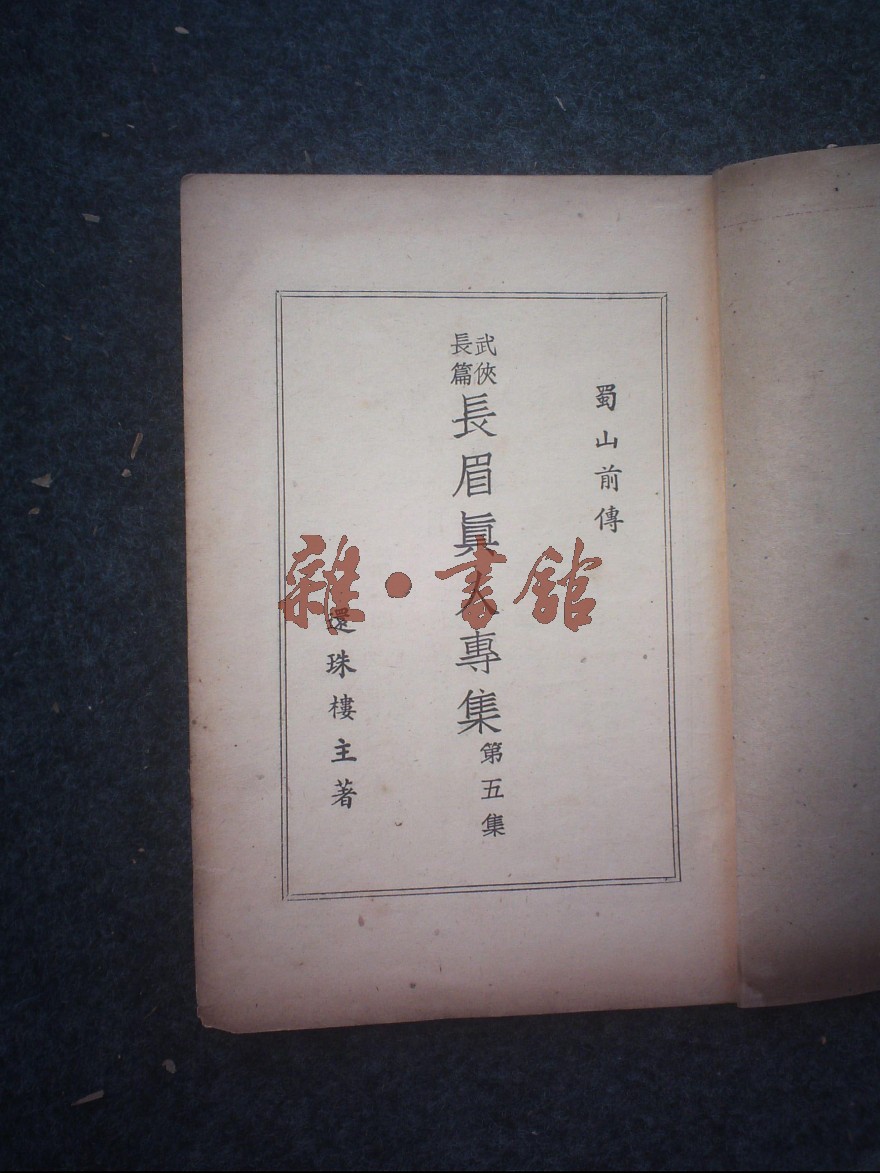 蜀山前傳
武俠
長篇
長眉眞人專集
第五集
還珠樓主著
雜·書館